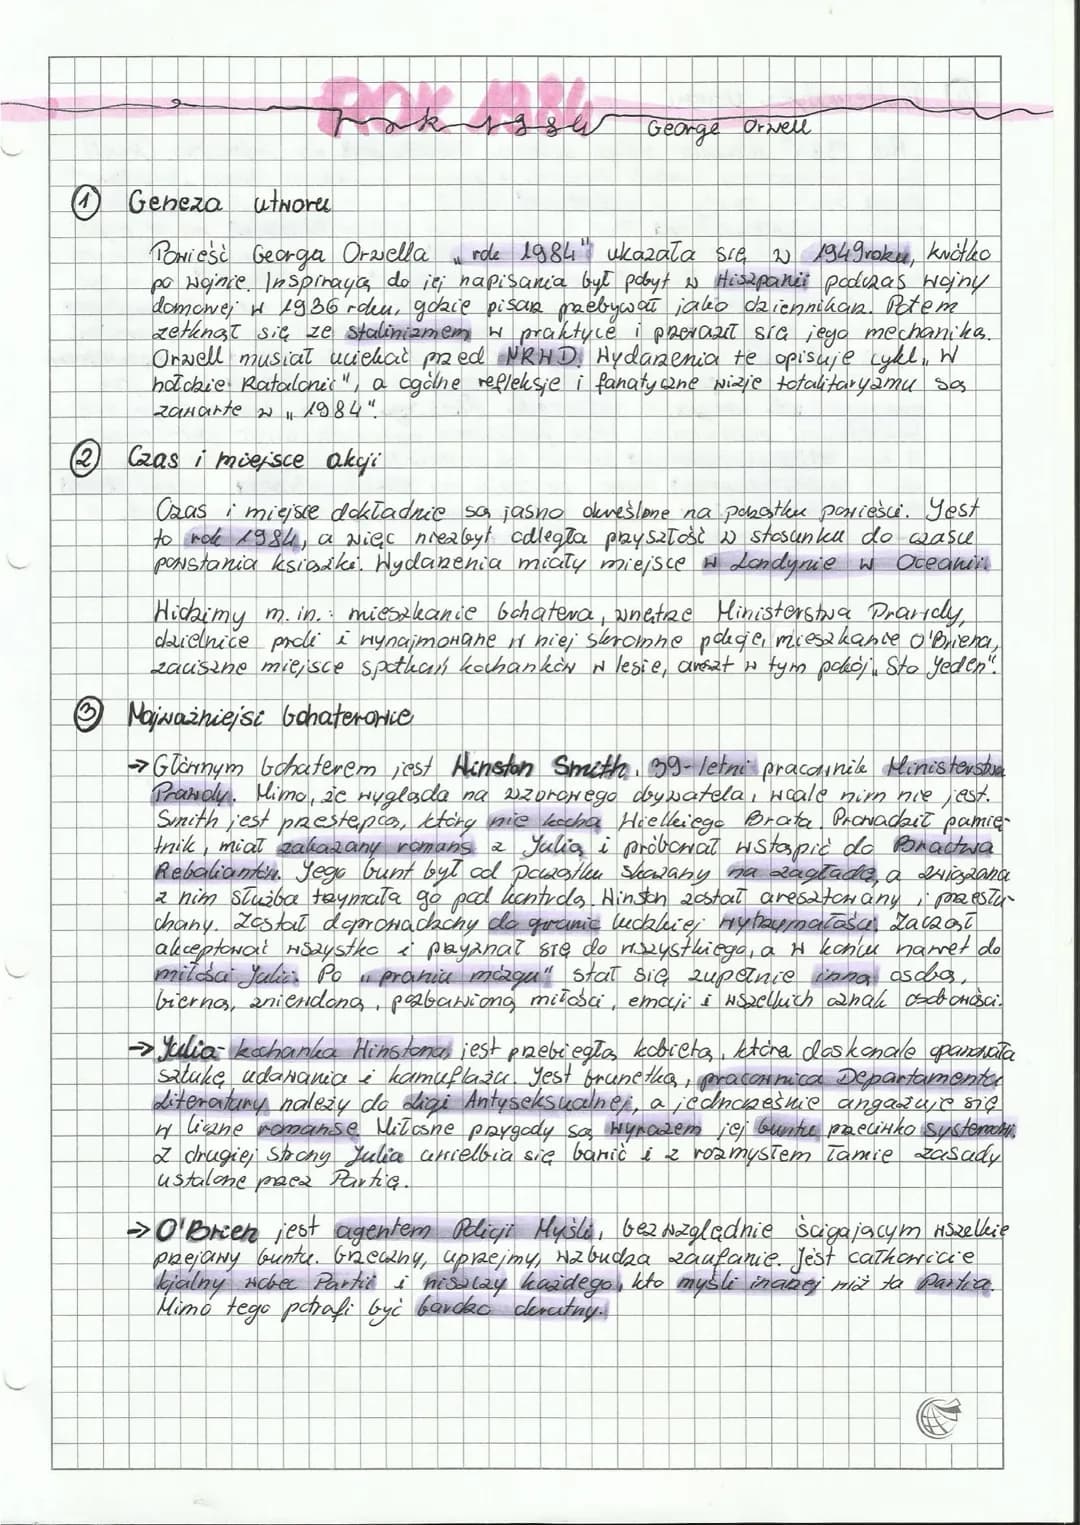 ROK 1984
rok 1984 George Orwell
1 Geneza utworu
Powieść Georga Orwella „rok 1984" ukazała się w 1949roku, krótko
po wojnie. Inspiracją do jej napisania był pobyt w Hiszpanii podczas wojny
domowej w 1936 roku, gdzie pisarz przebywał jako dziennikarz. Potem
zetknął się ze stalinizmem w praktyce i przeraził się jego mechaniką.
Orwell musiał uciekać przed NKWD. Wydarzenia te opisuje cykl „W
hołdzie Katalonii", a ogólne refleksje i fanatyczne wizje totalitaryzmu są
zawarte w „1984".
2 Czas i miejsce akcji
Czas i miejsce dokładnie są jasno określone na początku powieści. Jest
to rok 1984, a więc niezbyt odległa przyszłość w stosunku do czasu
powstania książki. Wydarzenia miały miejsce w Londynie w Oceanii.
Widzimy m.in.: mieszkanie bohatera, wnętrze Ministerstwa Prawdy,
dzielnice proli i wynajmowane w niej skromne pokoje, mieszkanie O'Briena,
zaciszne miejsce spotkań kochanków w lesie, areszt w tym pokój „Sto Jeden".
3 Najważniejsi bohaterowie
→ Głównym bohaterem jest Winston Smith, 39-letni pracownik Ministerstwa
Prawdy. Mimo, że wygląda na wzorowego obywatela, wcale nim nie jest.
Smith jest przestępcą, który nie kocha Wielkiego Brata. Prowadził pamię-
tnik, miał zakazany romans z Julią i próbował wstąpić do Bractwa
Rebeliantów. Jego bunt był od początku skazany na zagładę, a związana
z nim służba trzymała go pod kontrolą. Winston został aresztowany i przesłu-
chany. Został doprowadzony do granic ludzkiej wytrzymałości. Zaczął
akceptować wszystko i przyznał się do wszystkiego, a w końcu nawet do
miłości Julii. Po „praniu mózgu" stał się zupełnie inną osobą,
bierną, zniewoloną, pozbawioną miłości, emocji i wszelkich oznak osobowości.
→ Julia - kochanka Winstona, jest przebiegłą kobietą, która doskonale opanowała
sztukę udawania i kamuflażu. Jest brunetką, pracownica Departamentu
Literatury należy do Ligi Antyseksualnej, a jednocześnie angażuje się
w liczne romanse. Miłosne przygody są wyrazem jej buntu przeciwko systemowi.
Z drugiej strony Julia uwielbia się bawić i z rozmysłem łamie zasady
ustalone przez Partię.
→ O'Brien jest agentem Policji Myśli, bezwzględnie ścigającym wszelkie
przejawy buntu. Grzeczny, uprzejmy, wzbudza zaufanie. Jest całkowicie
lojalny wobec Partii i niszczy każdego, kto myśli inaczej niż ta Partia.
Mimo tego potrafi być bardzo okrutny.